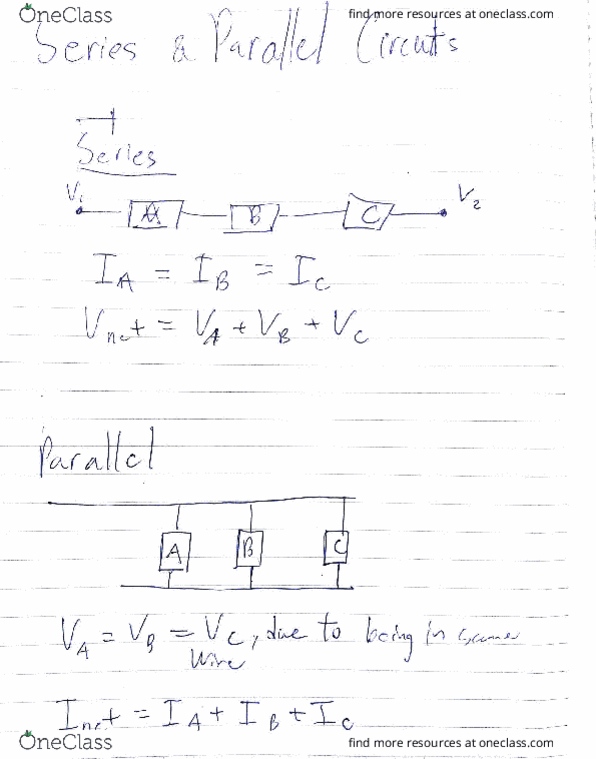 OneClass
find more resources at oneclass.com
Series & Parallel Circuits
Series
V1
A
B
C
V2
IA = IB = IC
Vnet = VA + VB + VC
Parallel
A
B
C
VA = VB = VC, due to being in
wire
Inet = IA + IB + IC
OneClass
find more resources at oneclass.com